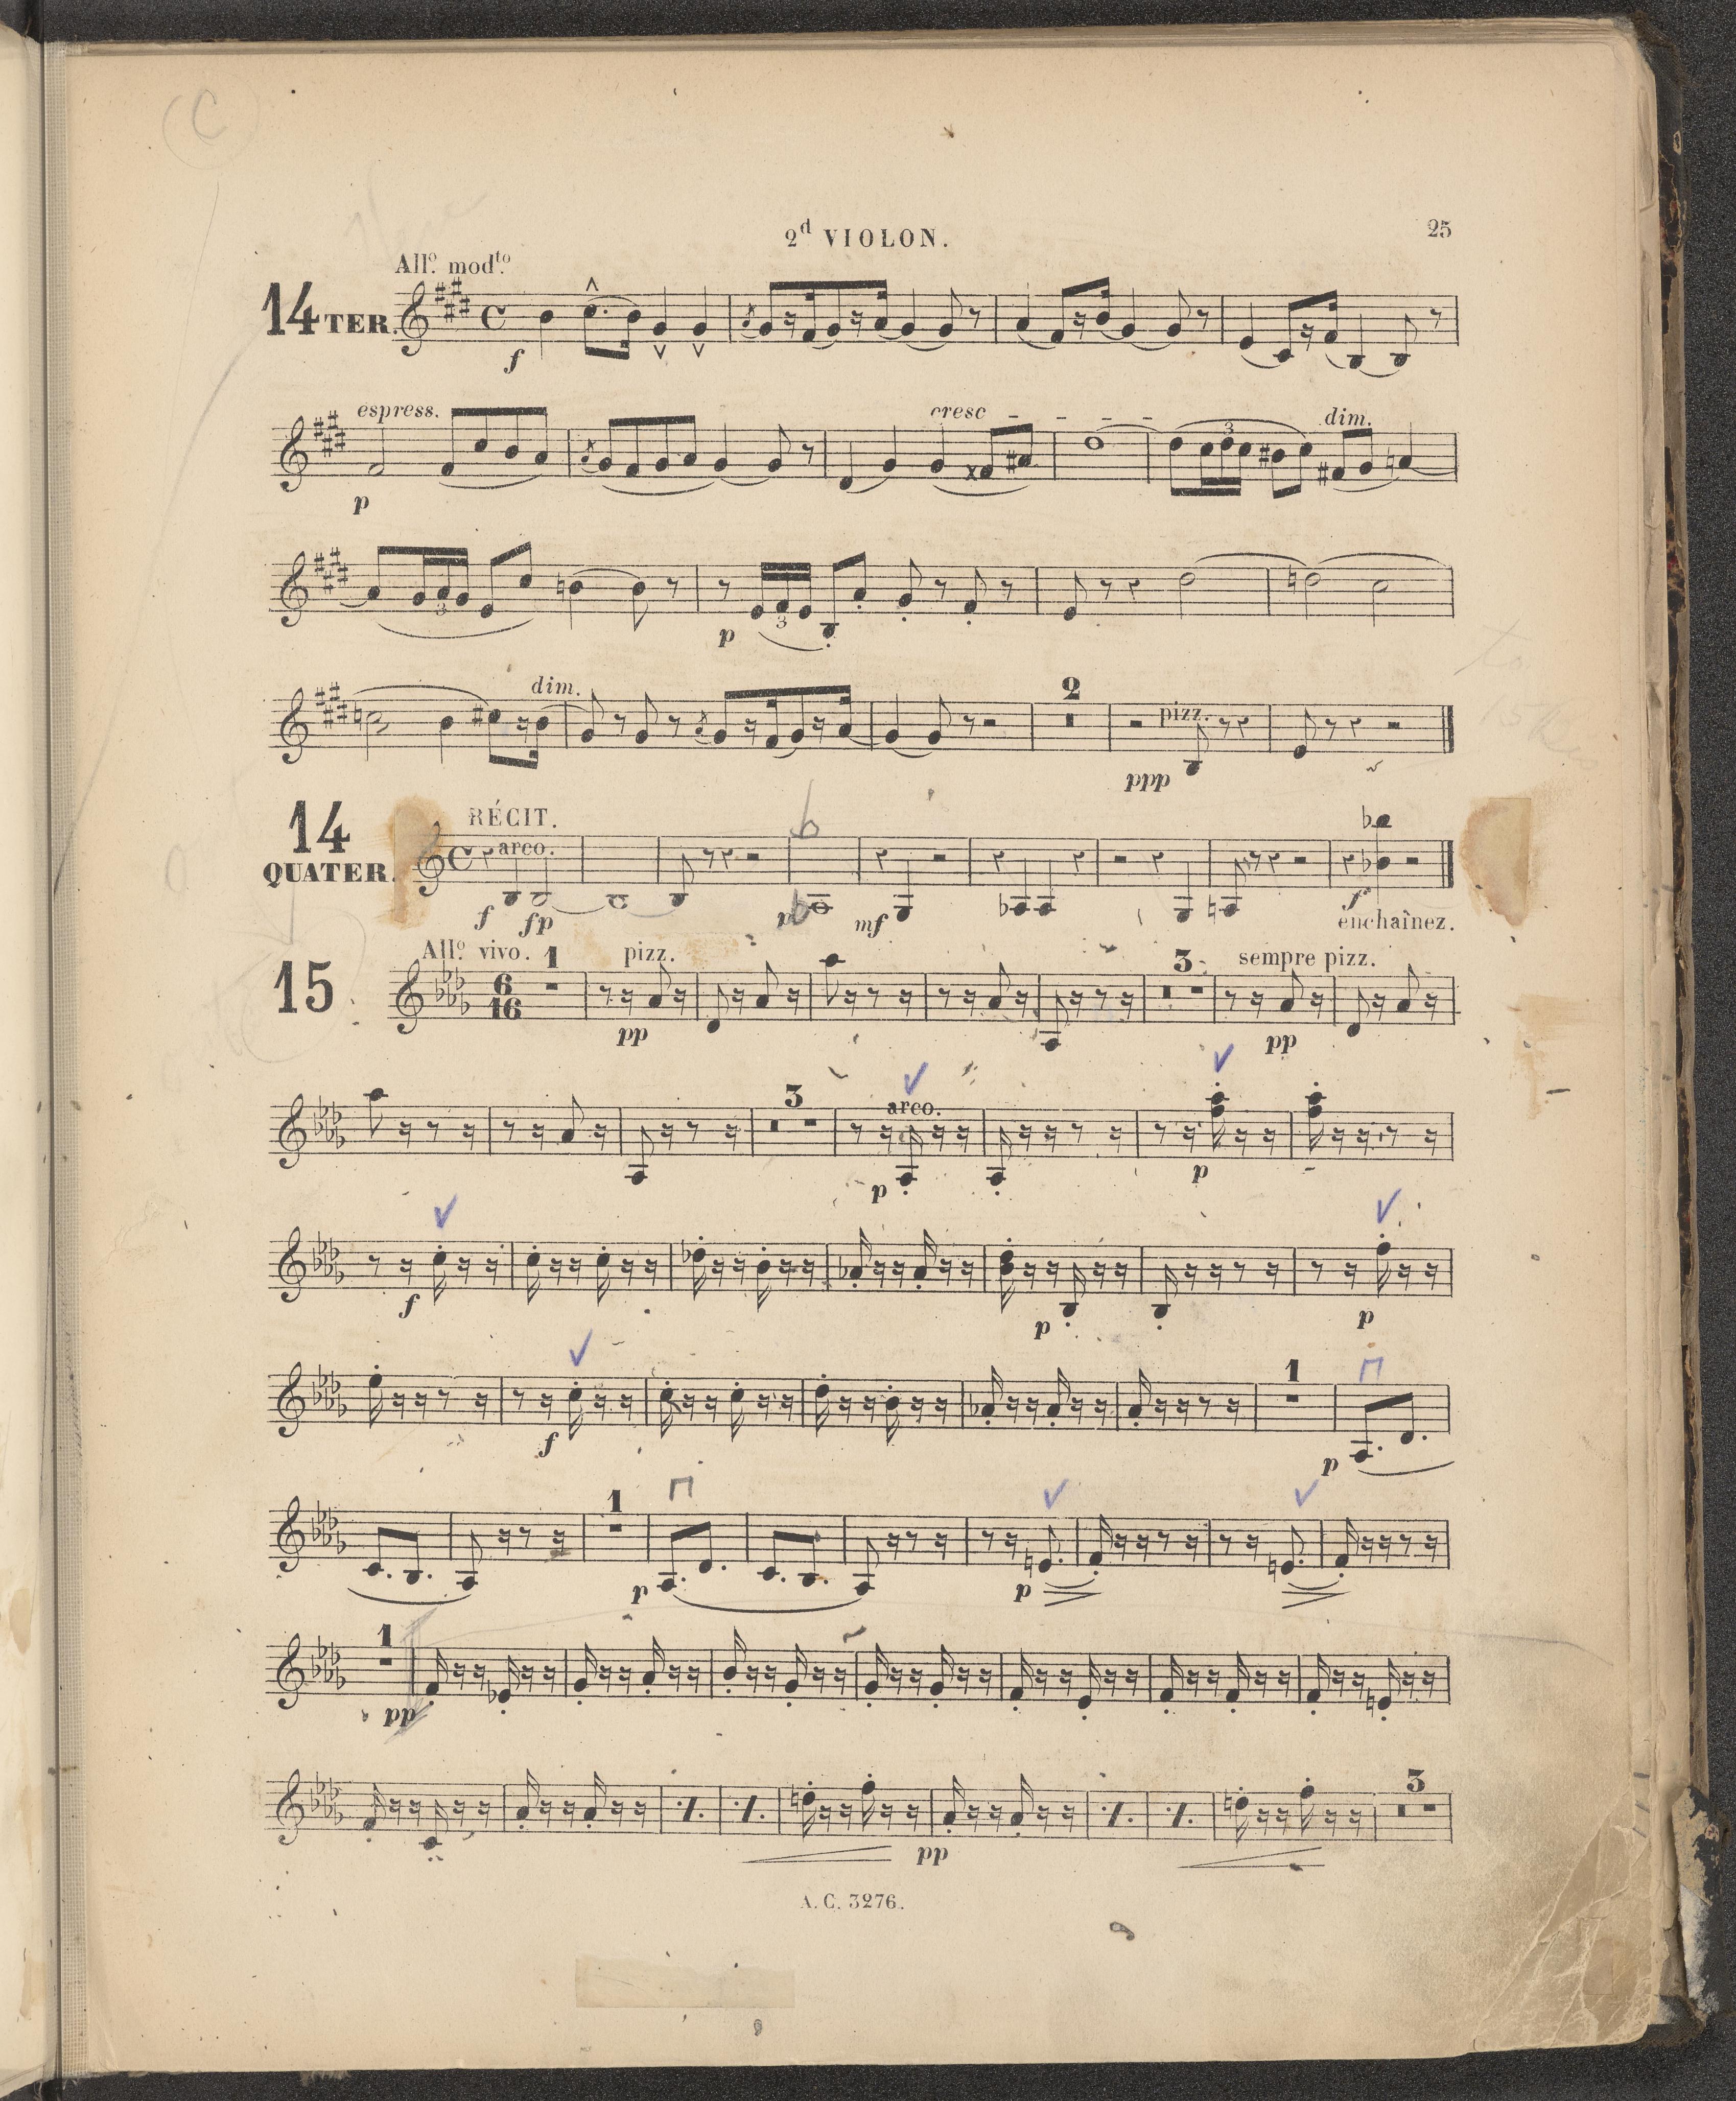 C
2d VIOLON.
25
Allo. modto.
14 TER.
f
espress.
cresc - - - -
dim.
3
p
3
3
p
to
dim.
2
pizz.
ppp
14 QUATER.
RÉCIT.
arco.
f fp mf f
enchaînez.
15
Allo. vivo.
1
pizz.
3
sempre pizz.
6
16
pp
pp
3
arco.
p
p
f
p
p
1
f
p
1
p
p
1
pp
3
pp
A. C. 3276.